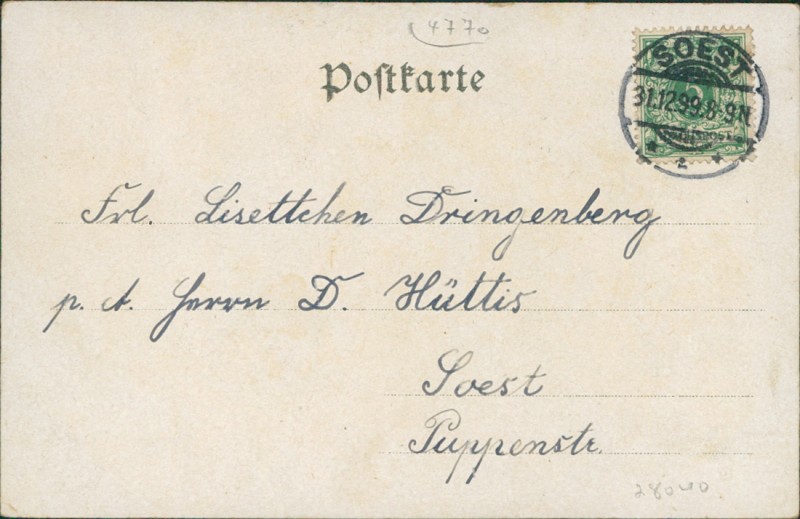 4770
Postkarte
SOEST
31.12.99.8-9N.
* 2 *
Frl. Lisettchen Dringenberg
p. A. Herrn D. Hüttis
Soest
Puppenstr.
28040